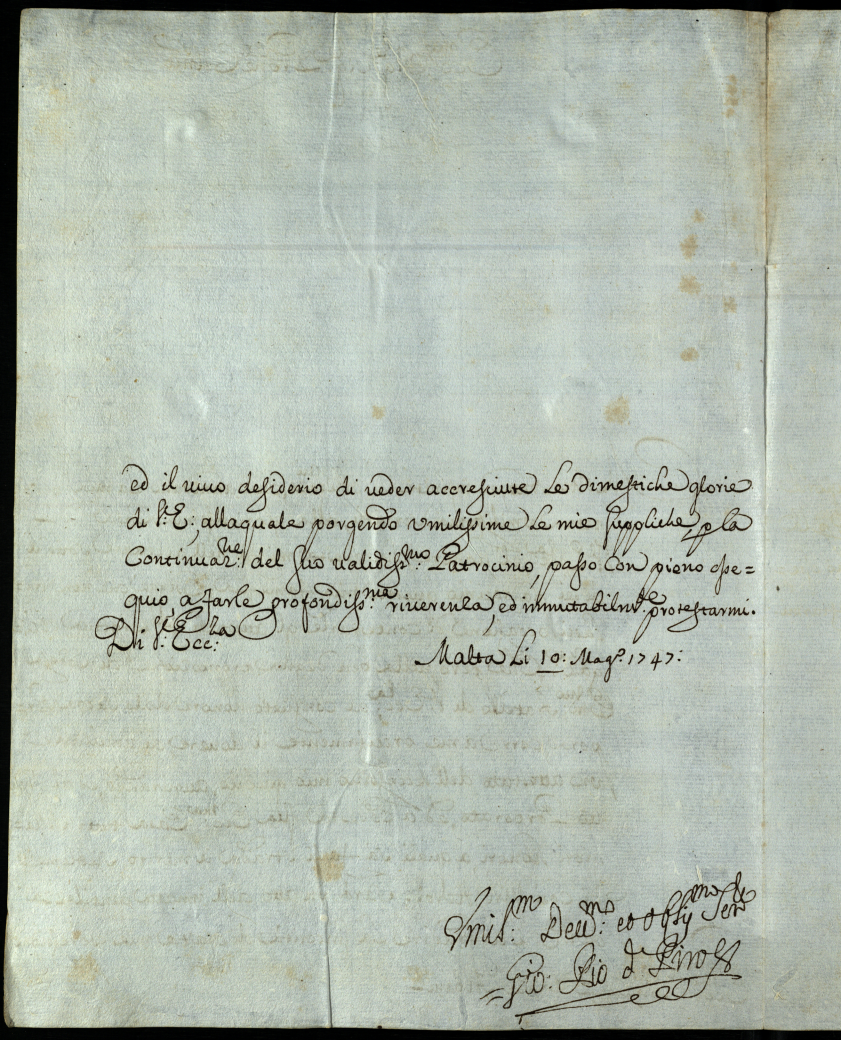 ed il vivo desiderio di veder accresciute le dimestiche glorie
di V.ra E: allaquale porgendo umilissime le mie suppliche p la
Continuaz.ne del suo validiss.mo Patrocinio, passo con pieno osse=
quio, a farle profondiss.ma riverenza, ed immutabilm.te protestarmi.
Di V.ra Ecc:za
Malta Li 10: Mag.o 1747:
Umil.mo Dev.mo et Obb.mo Ser.re
Gio: Pio de